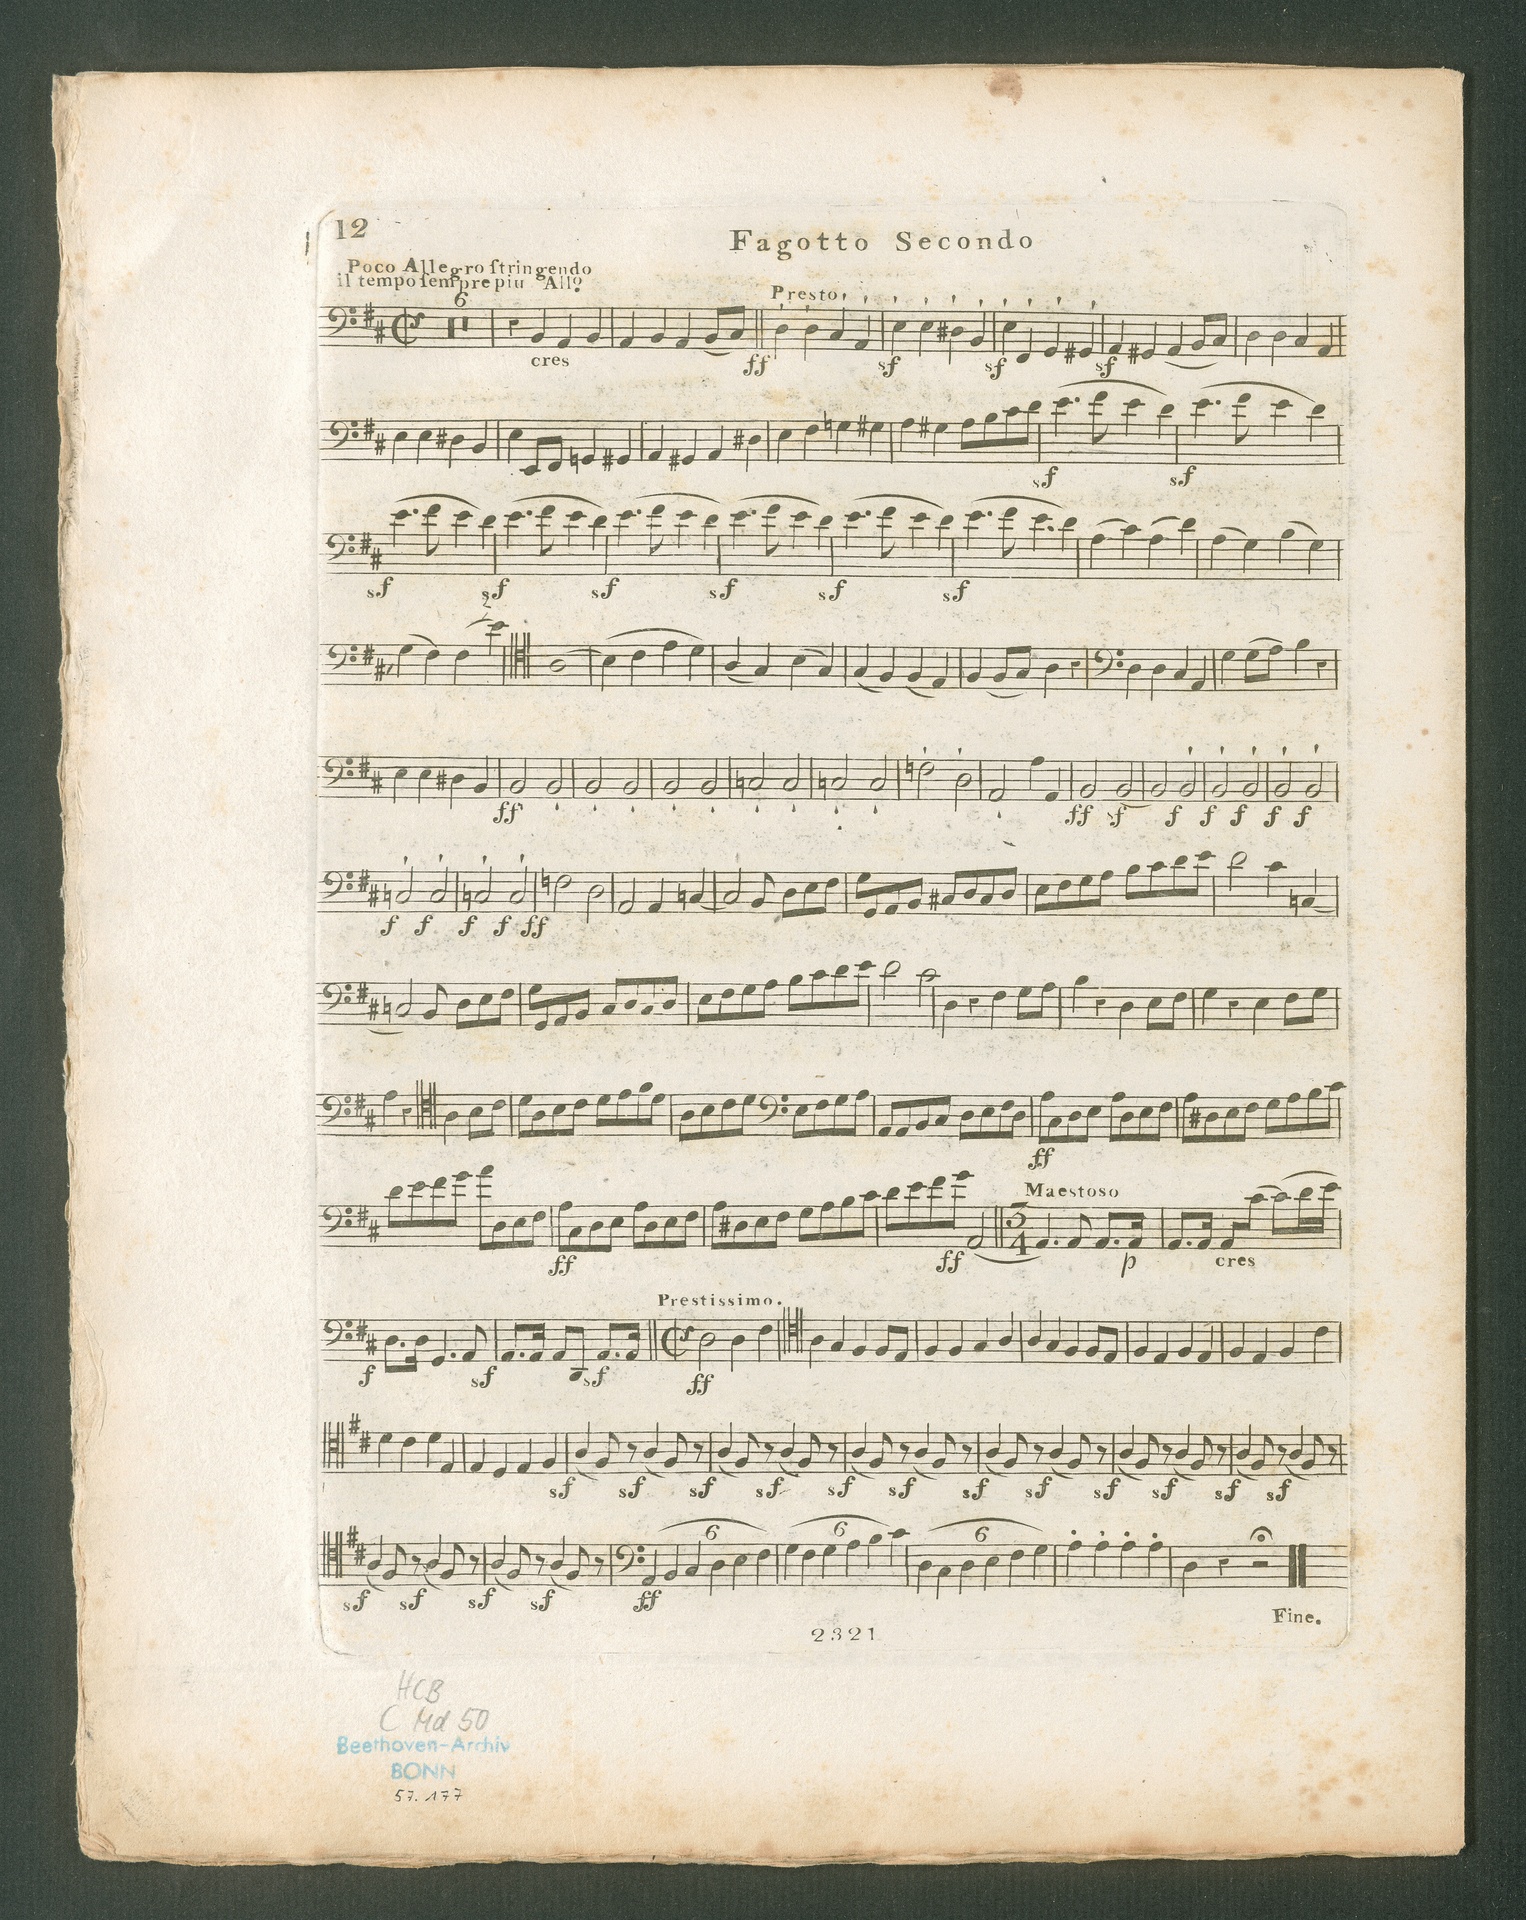 12
Fagotto Secondo
Poco Allegro ſtringendo
il tempo ſempre piu All?
6
Presto
cres
ff
sf
sf
sf
sf
sf
sf
sf
sf
sf
sf
sf
2
ff
ff
sf
f
f
f
f
f
f
f
f
f
ff
ff
Maestoso
3
4
ff
ff
p
cres
Prestissimo.
f
sf
sf
ff
sf
sf
sf
sf
sf
sf
sf
sf
sf
sf
sf
sf
6
6
6
sf
sf
sf
sf
ff
Fine.
2321
HCB
C Md 50
Beethoven-Archiv
BONN
57.177